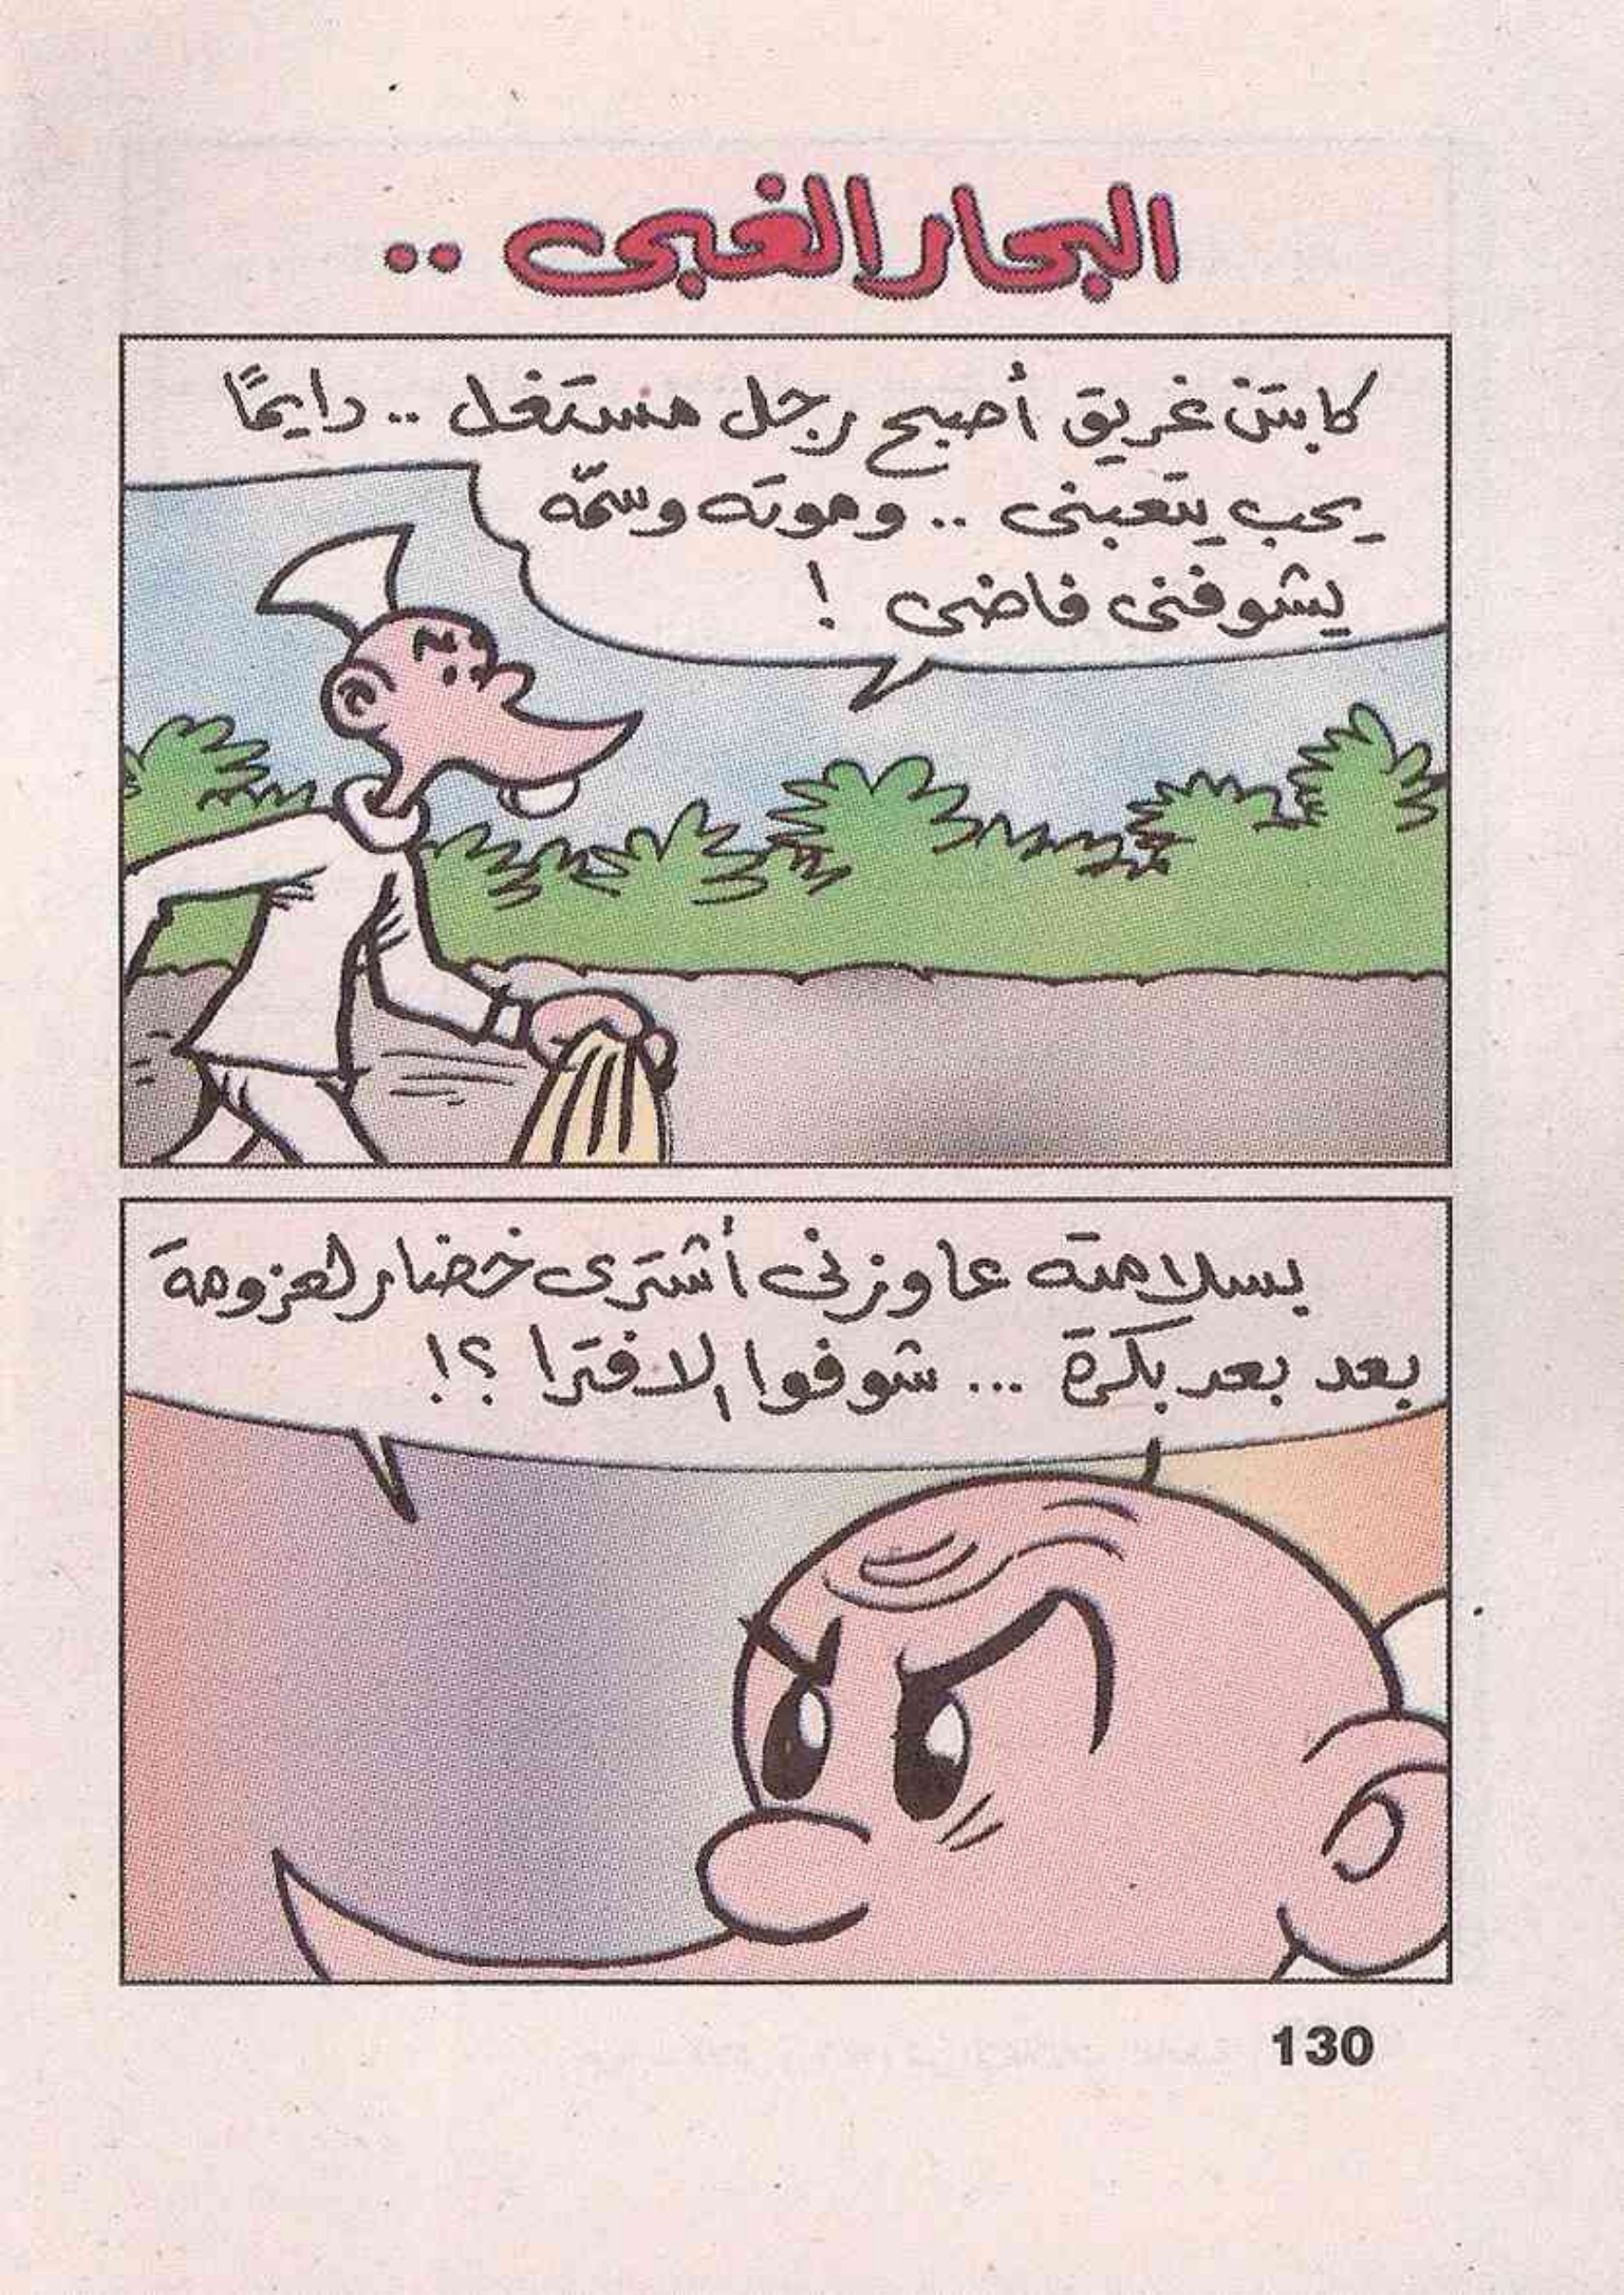 البحار الغبى ..
كابتن غريق أصبح رجل مستغل .. دايمًا
يحب يتعبنى .. وموته وسمّه
يشوفنى فاضى !
بسلامته عاوزنى أشترى خضار لعزومة
بعد بعد بكرة ... شوفوا الافترا ؟!
130